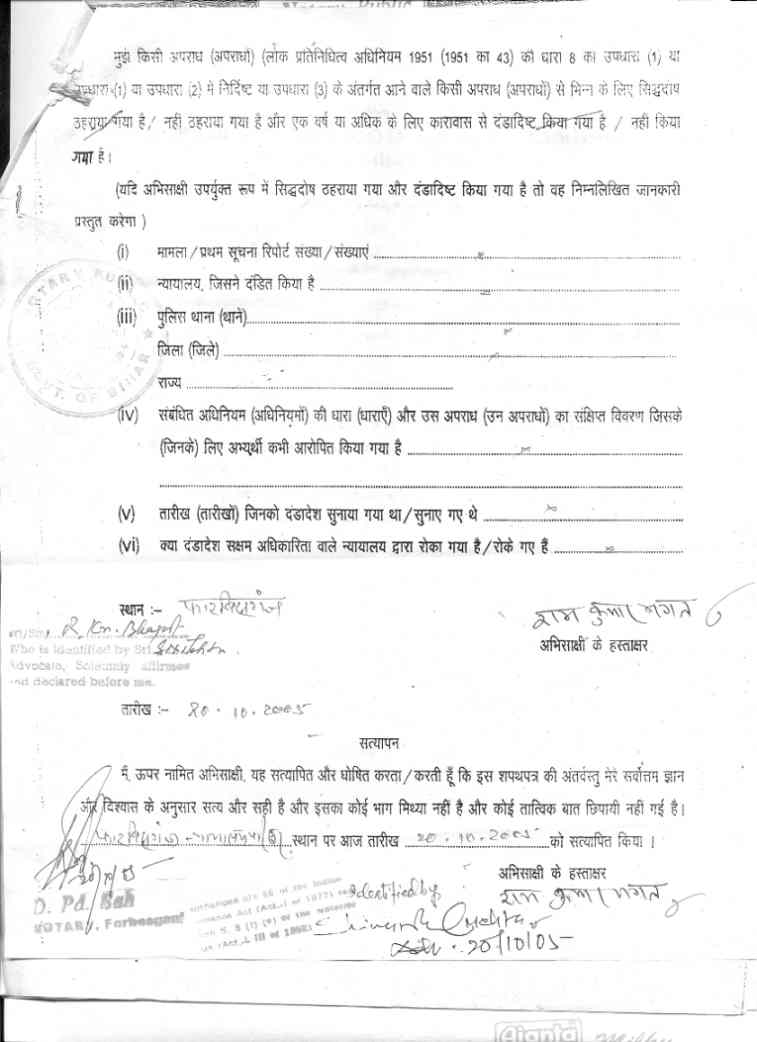 मुझे किसी अपराध (अपराधों) (लोक प्रतिनिधित्व अधिनियम 1951 (1951 का 43) की धारा 8 की उपधारा (1) या
उपधारा (1) या उपधारा (2) में निर्दिष्ट या उपधारा (3) के अंतर्गत आने वाले किसी अपराध (अपराधों) से भिन्न के लिए सिद्धदोष
ठहराया गया है / नहीं ठहराया गया है और एक वर्ष या अधिक के लिए कारावास से दंडादिष्ट किया गया है / नहीं किया
गया है।
(यदि अभिसाक्षी उपर्युक्त रूप में सिद्धदोष ठहराया गया और दंडादिष्ट किया गया है तो वह निम्नलिखित जानकारी
प्रस्तुत करेगा )
(i) मामला / प्रथम सूचना रिपोर्ट संख्या / संख्याएं
(ii) न्यायालय, जिसने दंडित किया है
(iii) पुलिस थाना (थाने)
जिला (जिले)
राज्य
NOTARY PUBLIC
GOVT. OF BIHAR
(iv) संबंधित अधिनियम (अधिनियमों) की धारा (धाराएँ) और उस अपराध (उन अपराधों) का संक्षिप्त विवरण जिसके
(जिनके) लिए अभ्यर्थी कभी आरोपित किया गया है
(v) तारीख (तारीखों) जिनको दंडादेश सुनाया गया था / सुनाए गए थे
(vi) क्या दंडादेश सक्षम अधिकारिता वाले न्यायालय द्वारा रोका गया है / रोके गए हैं
स्थान :– फारबिसगंज
राम कुमार भगत
R. Kr. Bhagat
अभिसाक्षी के हस्ताक्षर
Who is identified by Sri
Advocate, Solemnly affirmed
and declared before me.
तारीख :– 20 . 10 . 2005
सत्यापन
मैं, ऊपर नामित अभिसाक्षी, यह सत्यापित और घोषित करता / करती हूँ कि इस शपथपत्र की अंतर्वस्तु मेरे सर्वोत्तम ज्ञान
और विश्वास के अनुसार सत्य और सही है और इसका कोई भाग मिथ्या नहीं है और कोई तात्विक बात छिपायी नहीं गई है।
फारबिसगंज स्थान पर आज तारीख 20 . 10 . 2005 को सत्यापित किया ।
अभिसाक्षी के हस्ताक्षर
राम कुमार भगत
D. Pd. Sah
NOTARY, Forbesganj
Identified by
20/10/05